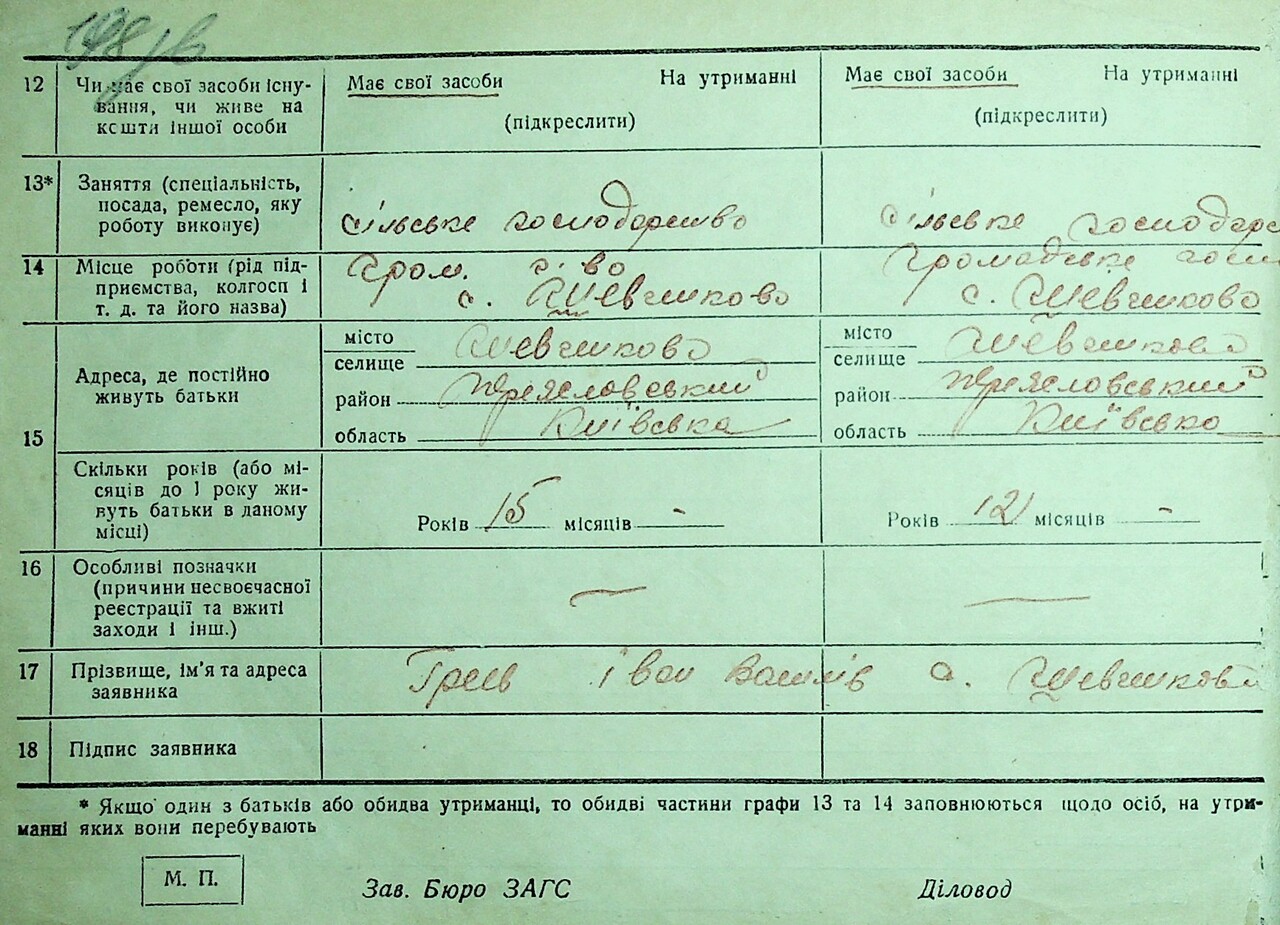 12 Чи має свої засоби існу- Має свої засоби На утриманні Має свої засоби На утриманні
вання, чи живе на
кошти іншої особи (підкреслити) (підкреслити)
13* Заняття (спеціальність,
посада, ремесло, яку
роботу виконує) сільське господарство сільське господарс
14 Місце роботи (рід під- Гром. г-во Громадське госп
приємства, колгосп і с. Шевченково с. Шевченково
т. д. та його назва)
15 Адреса, де постійно
живуть батьки
місто Шевченково місто Шевченково
селище селище
район Переяславський район Переяславський
область Київська область Київсько
Скільки років (або мі-
сяців до 1 року жи-
вуть батьки в даному Років 15 місяців - Років 12 місяців -
місці)
16 Особливі позначки —
(причини несвоєчасної
реєстрації та вжиті
заходи і інш.)
17 Прізвище, ім'я та адреса Іван с. Шевченково
заявника
18 Підпис заявника
* Якщо один з батьків або обидва утриманці, то обидві частини графи 13 та 14 заповнюються щодо осіб, на утри-
манні яких вони перебувають
М. П. Зав. Бюро ЗАГС Діловод